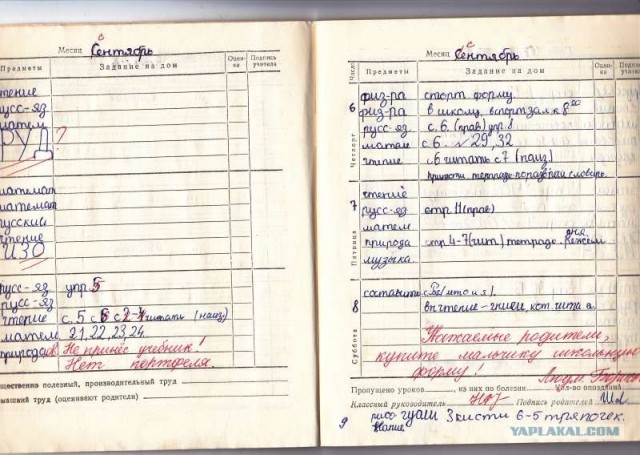 Месяц Сентябрь
Предметы Задание на дом Оценка Подпись учителя
чтение
русс-яз
матем
ТРУД?
математ
математ
русский
чтение
ИЗО
русс-яз упр. 5
русс-яз
чтение с. 5 с 6 с 2-4 читать (наиз)
матем 21, 22, 23, 24.
природов Не принёс учебник!
Нет портфеля.
Общественно полезный, производительный труд
Домашний труд (оценивают родители)
Месяц Сентябрь
Число Предметы Задание на дом Оценка Подпись
6 физ-ра спорт. форму.
физ-ра в школу. в спортзал к 8 00
русс-яз. с. 6. (прав) упр. 8
Четверг матем с 6. √ 29, 32
чтение с 6 читать с 7 (наиз)
словарь.
7 чтение
русс-яз стр. 11 (прав)
матем
Пятница природа стр 4-7 (чит.) тетрадь. дня
музыка
8 составить
Суббота Уважаемые родители,
купите мальчику школьную
форму!
Пропущено уроков из них по болезни Кол-во опозданий
Классный руководитель Подпись родителей
9 рисо гуаш 3 кисти 6-5 тряпочек.
YAPLAKAL.COM